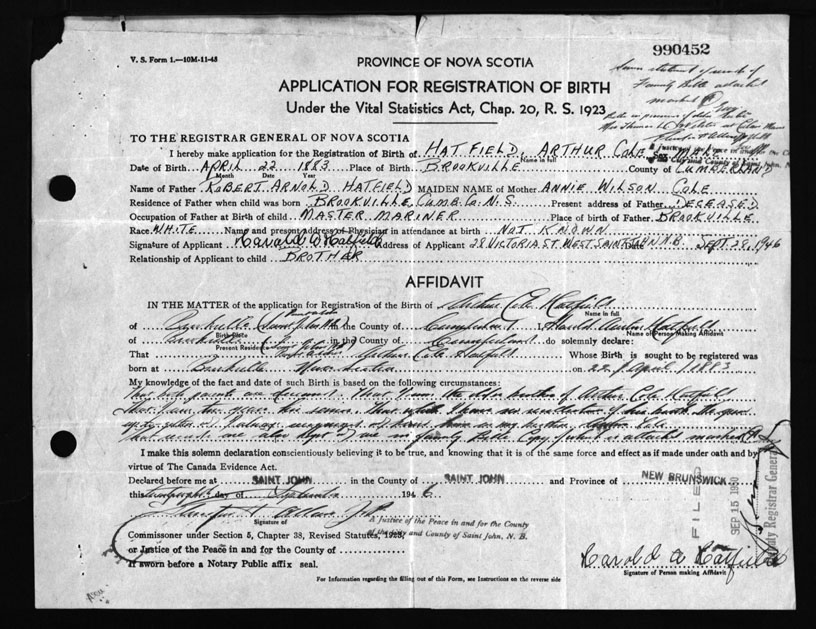 990452
V. S. Form 1.—10M-11-43
PROVINCE OF NOVA SCOTIA
APPLICATION FOR REGISTRATION OF BIRTH
Under the Vital Statistics Act, Chap. 20, R. S. 1923
Family Bible attached
marked
TO THE REGISTRAR GENERAL OF NOVA SCOTIA
I hereby make application for the Registration of Birth of HATFIELD, ARTHUR COLE
Name in full
Date of Birth APRIL 22 1883 Place of Birth BROOKVILLE County of CUMBERLAND
Month Date Year
Name of Father ROBERT ARNOLD HATFIELD MAIDEN NAME of Mother ANNIE WILSON COLE
Residence of Father when child was born BROOKVILLE, CUMB. Co. N.S. Present address of Father DECEASED
Occupation of Father at Birth of child MASTER MARINER Place of birth of Father BROOKVILLE
Race WHITE Name and present address of Physician in attendance at birth NOT KNOWN
Signature of Applicant Harold A Hatfield Address of Applicant 28 VICTORIA ST. WEST SAINT JOHN N.B. Date SEPT 28, 1946
Relationship of Applicant to child BROTHER
AFFIDAVIT
IN THE MATTER of the application for Registration of the Birth of Arthur Cole Hatfield
Name in full
of Brookville (Saint John N.B.) in the County of Cumberland I, Harold Hatfield
Birth Place Name of Person Making Affidavit
of Brookville (Saint John N.B.) in the County of Cumberland do solemnly declare:
Present Residence
That Arthur Cole Hatfield Whose Birth is sought to be registered was
born at Brookville Nova Scotia on 22 of April 1883
My knowledge of the fact and date of such Birth is based on the following circumstances:
That both parents are deceased. That I am the older brother of Arthur Cole Hatfield
that I am two years his senior. That while I have no recollection of his birth
up together and I always
That records are also kept in family Bible Copy of which is attached marked A
I make this solemn declaration conscientiously believing it to be true, and knowing that it is of the same force and effect as if made under oath and by
virtue of The Canada Evidence Act.
Declared before me at SAINT JOHN in the County of SAINT JOHN and Province of NEW BRUNSWICK
this day of September 1946
Signature of
A Justice of the Peace in and for the County
of the City and County of Saint John, N. B.
Commissioner under Section 5, Chapter 38, Revised Statutes, 1923,
or Justice of the Peace in and for the County of
If sworn before a Notary Public affix seal.
FILED
SEP 15 1950
Deputy Registrar General
Harold A Hatfield
Signature of Person making Affidavit
For Information regarding the filling out of this Form, see Instructions on the reverse side